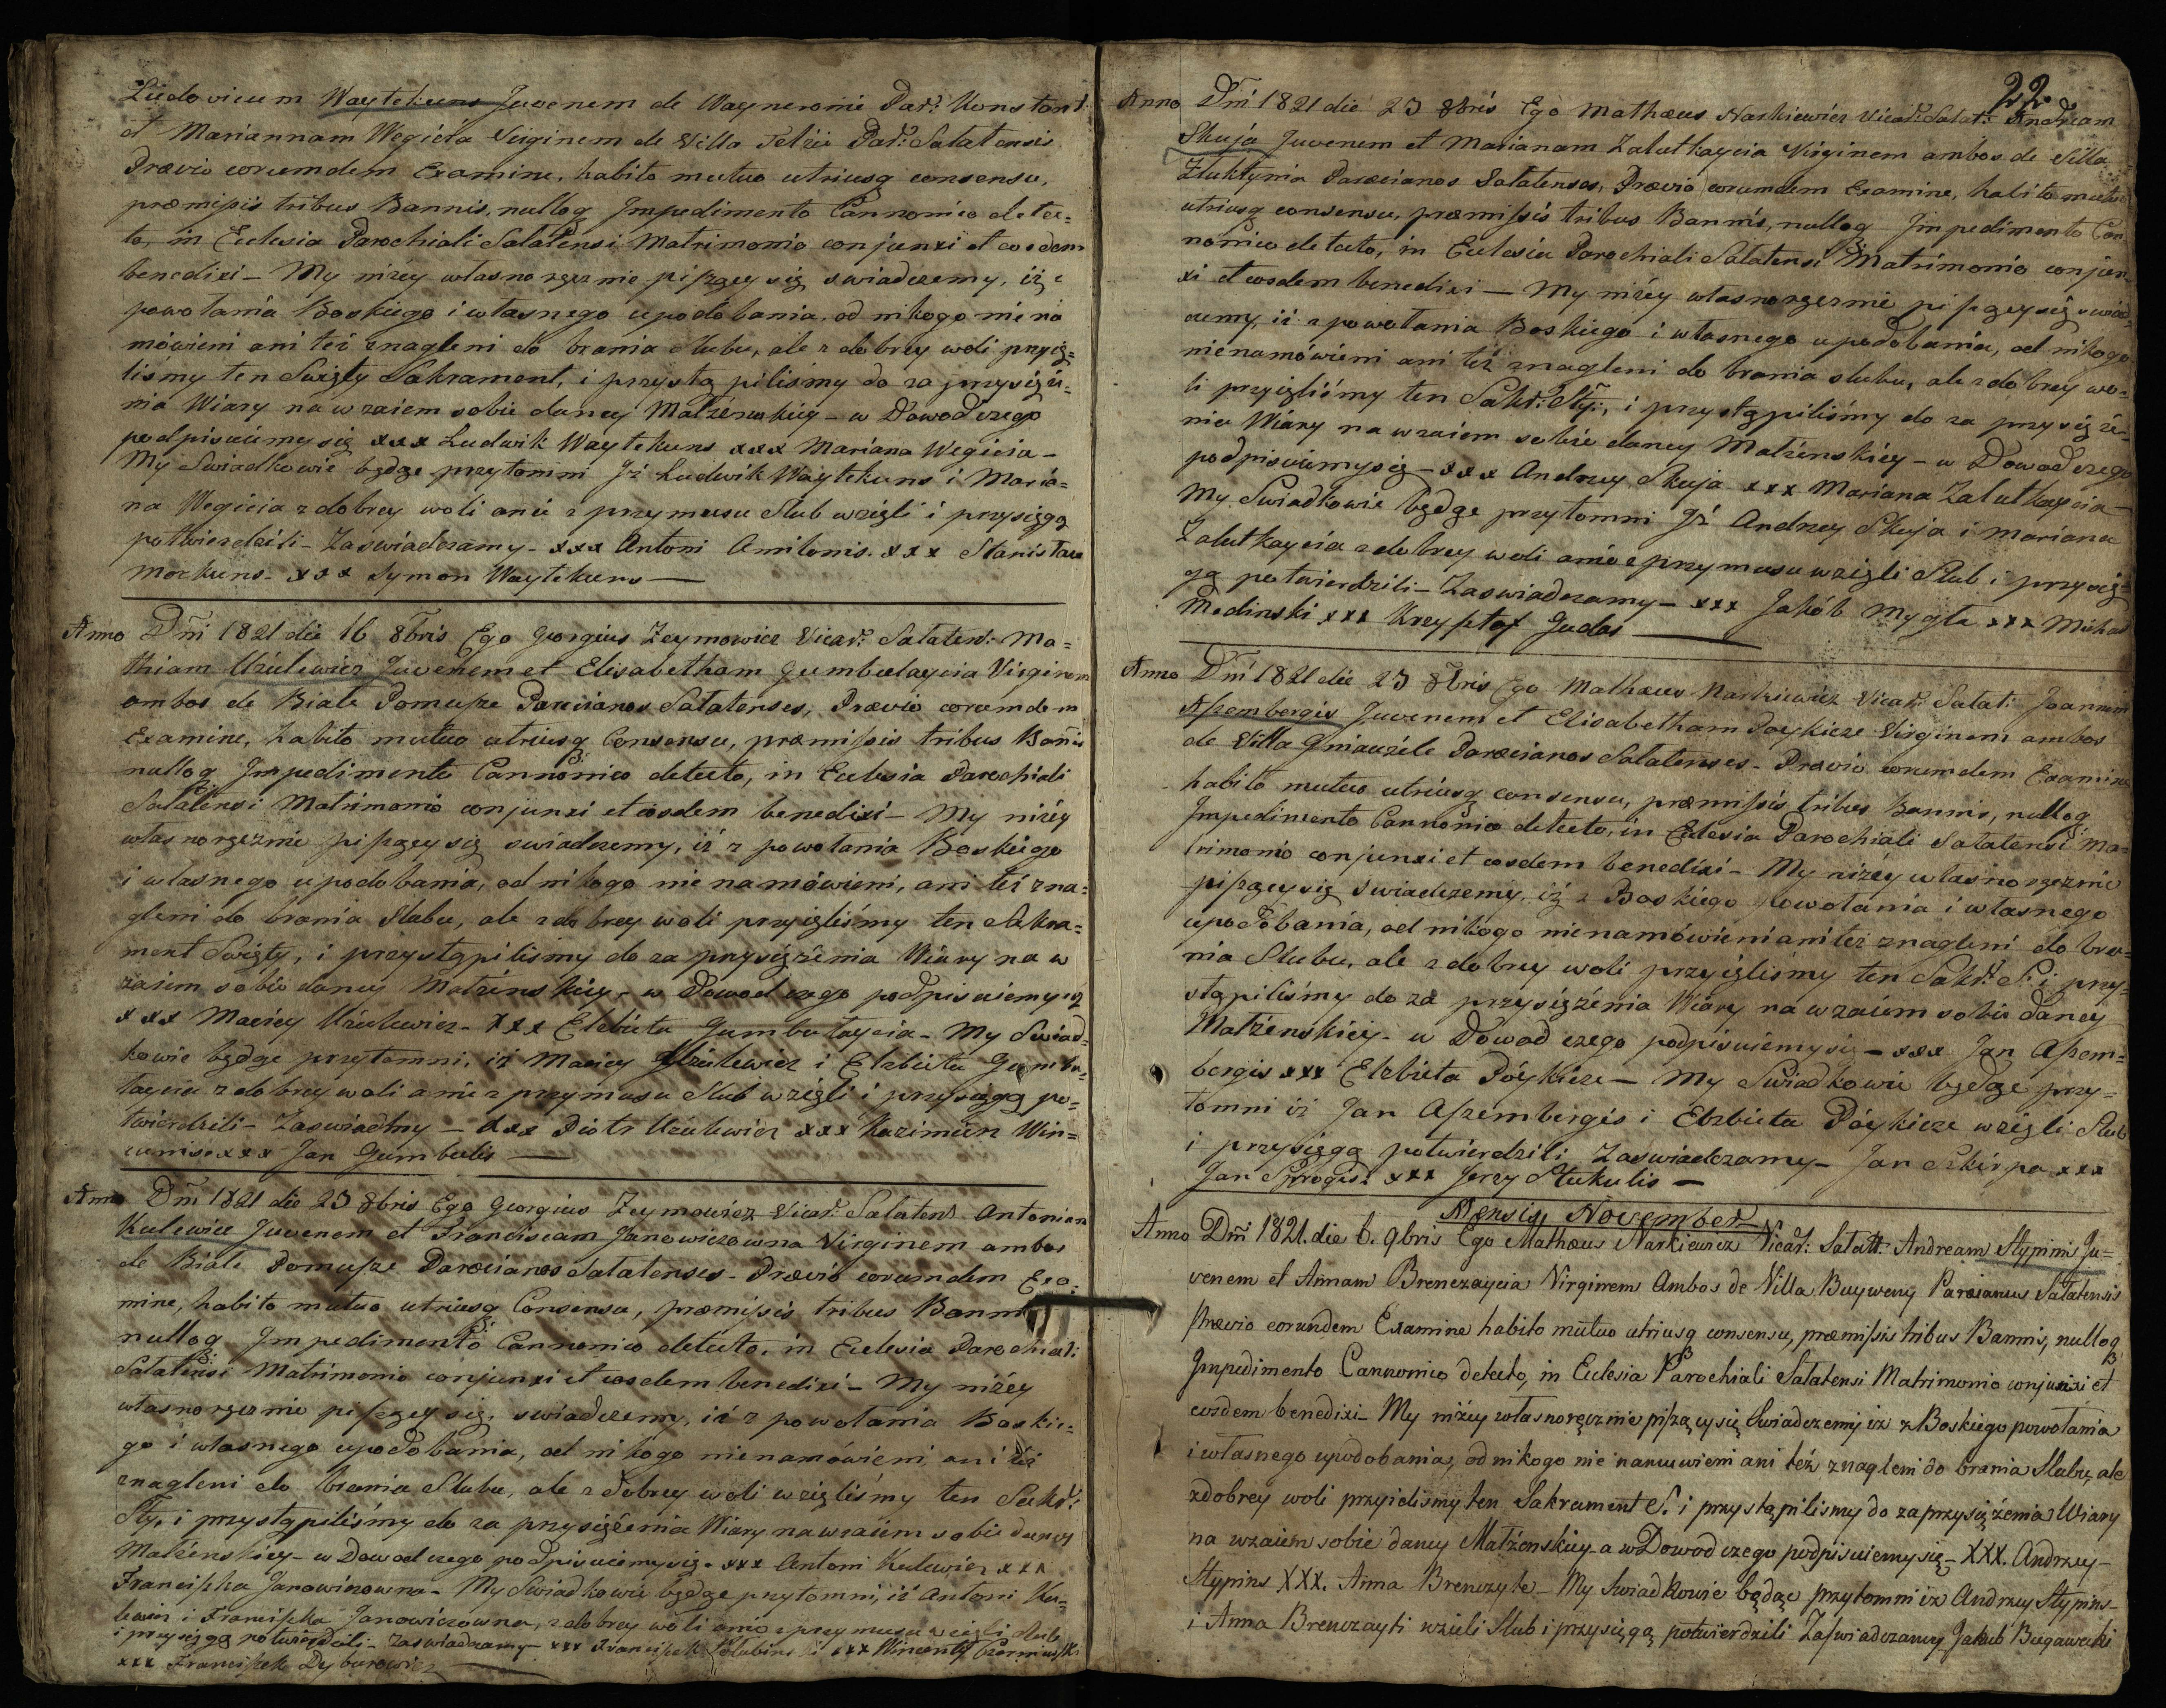 Ludovicum Waytekuns Juvenem de Wayneronie Par: Konstant
et Mariannam Wegicia Virginem de Villa Telżie Par: Salatensis
Prævio eorumdem Examine, habito mutuo utriusq consensu,
præmissis tribus Bannis, nulloq Impedimento Cannonico detec=
to, in Eclesia Parochiali Salatensi Matrimonio conjunxi et eosdem
benedixi – My niżey własnoręcznie piszący się swiadczemy, iż z
powołania Boskiego i własnego upodobania, od nikogo nie na
mówieni ani też znagleni do brania slubu, ale z dobrey woli przyię=
lismy ten Swięty Sakrament, i przystąpiliśmy do zaprzysięże=
nia Wiary nawzaiem sobie daney Małżenskiey – w Dowod czego
podpisuiemy się xxx Ludwik Waytekuns xxx Mariana Wegicia –
My Swiadkowie będąc przytomni Iż Ludwik Waytekuns i Maria=
na Wegicia z dobrey woli a nie z przymusu Slub wzięli i przysięgą
potwierdzili – Zaswiadczamy – xxx Antoni Amilonis. xxx Stanisław
Mockuns – xxx Symon Waytekuns —
Anno Dñi 1821 die 16 8bris Ego Georgius Zeymowicz Vicar: Salatens: Ma=
thiam Uzulewicz Juvenem et Elisabetham Gumbulaycia Virginem
ambos de Biale Pomusze Parœcianos Salatenses, Prævio eorumdem
Examine, habito mutuo utriusq Consensu, præmissis tribus Bañis
nulloq Impedimento Cannonico detecto, in Eclesia Parochiali
Salatensi Matrimonio conjunxi et eosdem benedixi – My niżey
własnoręcznie piszący się swiadczemy, iż z powołania Boskiego
i własnego upodobania, od nikogo nie namówieni, ani też zna=
gleni do brania slubu, ale z dobrey woli przyięliśmy ten Sakra=
ment Swięty, i przystąpilismy do zaprzysiężenia Wiary na w
zaiem sobie daney Małżenskiey, w Dowod czego podpisuiemy się
xxx Maciey Uzulewicz – xxx Elzbieta Gumbulaycia – My Swiad=
kowie będąc przytomni, iż Maciey Uzulewicz i Elzbieta Gumbu=
laycia z dobrey woli a nie z przymusu slub wzięli i przysięgą po=
twierdzili – Zaswiadmy – xxx Piotr Uzulewicz xxx Kazimierz Win=
cunis xxx Jan Gumbulis —
Anno Dñi 1821 die 23 8bris Ego Georgius Zeymowicz Vicar: Salatens Antonium
Kulewicz Juvenem et Franciscam Janowiczowna Virginem ambos
de Biale Pomusze Parœcianos Salatenses – Prævio eorumdem Exa=
mine, habito mutuo utriusq Consensu, præmissis tribus Bannis
nulloq Impedimento Cannonico detecto, in Eclesia Parochiali
Salatensi Matrimonio conjunxi et eosdem benedixi – My niżey
własnoręcznie piszący się, swiadczemy, iż z powołania Boskie=
go i własnego upodobania, od nikogo nienamówieni, ani też
znagleni do brania Slubu, ale z dobrey woli wzięliśmy ten Sakr:
Sty, i przystąpiliśmy do zaprzysiężenia Wiary nawzaiem sobie daney
Małżenskiey – w Dowod czego podpisuiemy się – xxx Antoni Kulewicz xxx
Franciszka Janowiczowna – My Swiadkowie będąc przytomni, iż Antoni Ku=
lewicz i Franciszka Janowiczowna, z dobrey woli a nie z przymusu wzięli slub
i przysięgą potwierdzili – Zaswiadczamy – xxx Franciszek xxx Wincenty
xxx Franciszek Dyburewicz —
22
Anno Dñi 1821 die 23 8bris Ego Mathæus Narkiewicz Vicar: Salat: Andream
Skuja Juvenem et Marianam Zalutkaycia Virginem ambos de Villa
Zluktynia Parœcianos Salatenses, Prævio eorumdem Examine, habito mutuo
utriusq consensu, præmissis tribus Bannis, nulloq Impedimento Can=
nonico detecto, in Eclesia Parochiali Salatensi Matrimonio conjun=
xi et eosdem benedixi — My niżey własnoręcznie piszący się swiad=
czemy, iż z powołania Boskiego i własnego upodobania, od nikogo
nienamówieni ani też znagleni do brania slubu, ale z dobrey wo=
li przyięliśmy ten Sakr: Sty:, i przystąpiliśmy do zaprzysięże=
nia Wiary nawzaiem sobie daney Małżenskiey – w Dowod czego
podpisuiemy się – xxx Andrzey Skuja xxx Mariana Zalutkaycia –
My Swiadkowie będąc przytomni Iż Andrzey Skuja i Mariana
Zalutkaycia z dobrey woli a nie z przymusu wzięli Slub i przysię=
gą potwierdzili – Zaswiadczamy – xxx Jakób Mygla xxx Michał
Medinski xxx Krzysztof Gudas —
Anno Dñi 1821 die 23 8bris Ego Mathæus Narkiewicz Vicar: Salat: Joannem
Aszembergis Juvenem et Elisabetham Poykicze Virginem ambos
de Villa Gniauzele Parœcianos Salatenses – Prævio eorumdem Examine
habito mutuo utriusq consensu, præmissis tribus Bannis, nulloq
Impedimento Cannonico detecto, in Eclesia Parochiali Salatensi Ma=
trimonio conjunxi et eosdem benedixi – My niżey własnoręcznie
piszący się swiadczemy, iż z Boskiego powołania i własnego
upodobania, od nikogo nienamówieni ani też znagleni do bra=
nia Slubu, ale z dobrey woli przyięliśmy ten Sakr: S: i przy=
stąpiliśmy do zaprzysiężenia Wiary nawzaiem sobie daney
Małżenskiey – w Dowod czego podpisuiemy się – xxx Jan Aszem=
bergis xxx Elzbieta Póykicze – My Swiadkowie będąc przy=
tomni iż Jan Aszembergis i Elzbieta Póykicze wzięli Slub
i przysięgą potwierdzili Zaswiadczamy – Jan Szkirpa xxx
Jan Sprogis xxx Jerzy Stukulis —
Mensis November
Anno Dñi 1821. die 6. 9bris Ego Mathæus Narkiewicz Vicar: Salatt: Andream Stypinis Ju=
venem et Annam Brenczaycia Virginem Ambos de Villa Buyweny Parœianus Salatensis
Prævio eorundem Examine habito mutuo utriusq consensu, præmissis tribus Bannis, nulloq
Impedimento Cannonico detecto, in Eclesia Parochiali Salatensi Matrimonio conjunxi et
eosdem benedixi – My niżey własnoręcznie piszący się Swiadczemy iż z Boskiego powołania
i własnego upodobania, od nikogo nie namuwieni ani też znagleni do brania Slubu, ale
zdobrey woli przyielismy ten Sakrament S. i przystąpilismy do zaprzysiężenia Wiary
na wzaiem sobie daney Małżenskiey a w Dowod czego podpisuiemy się – XXX. Andrzey –
Stypins XXX. Anna Brenczyte – My Swiadkowie będąc przytomni iż Andrzey Stypins –
i Anna Brenczayti wzieli Slub i przysięgą potwierdzili Zaswiadczamy Jakub Bugawecki